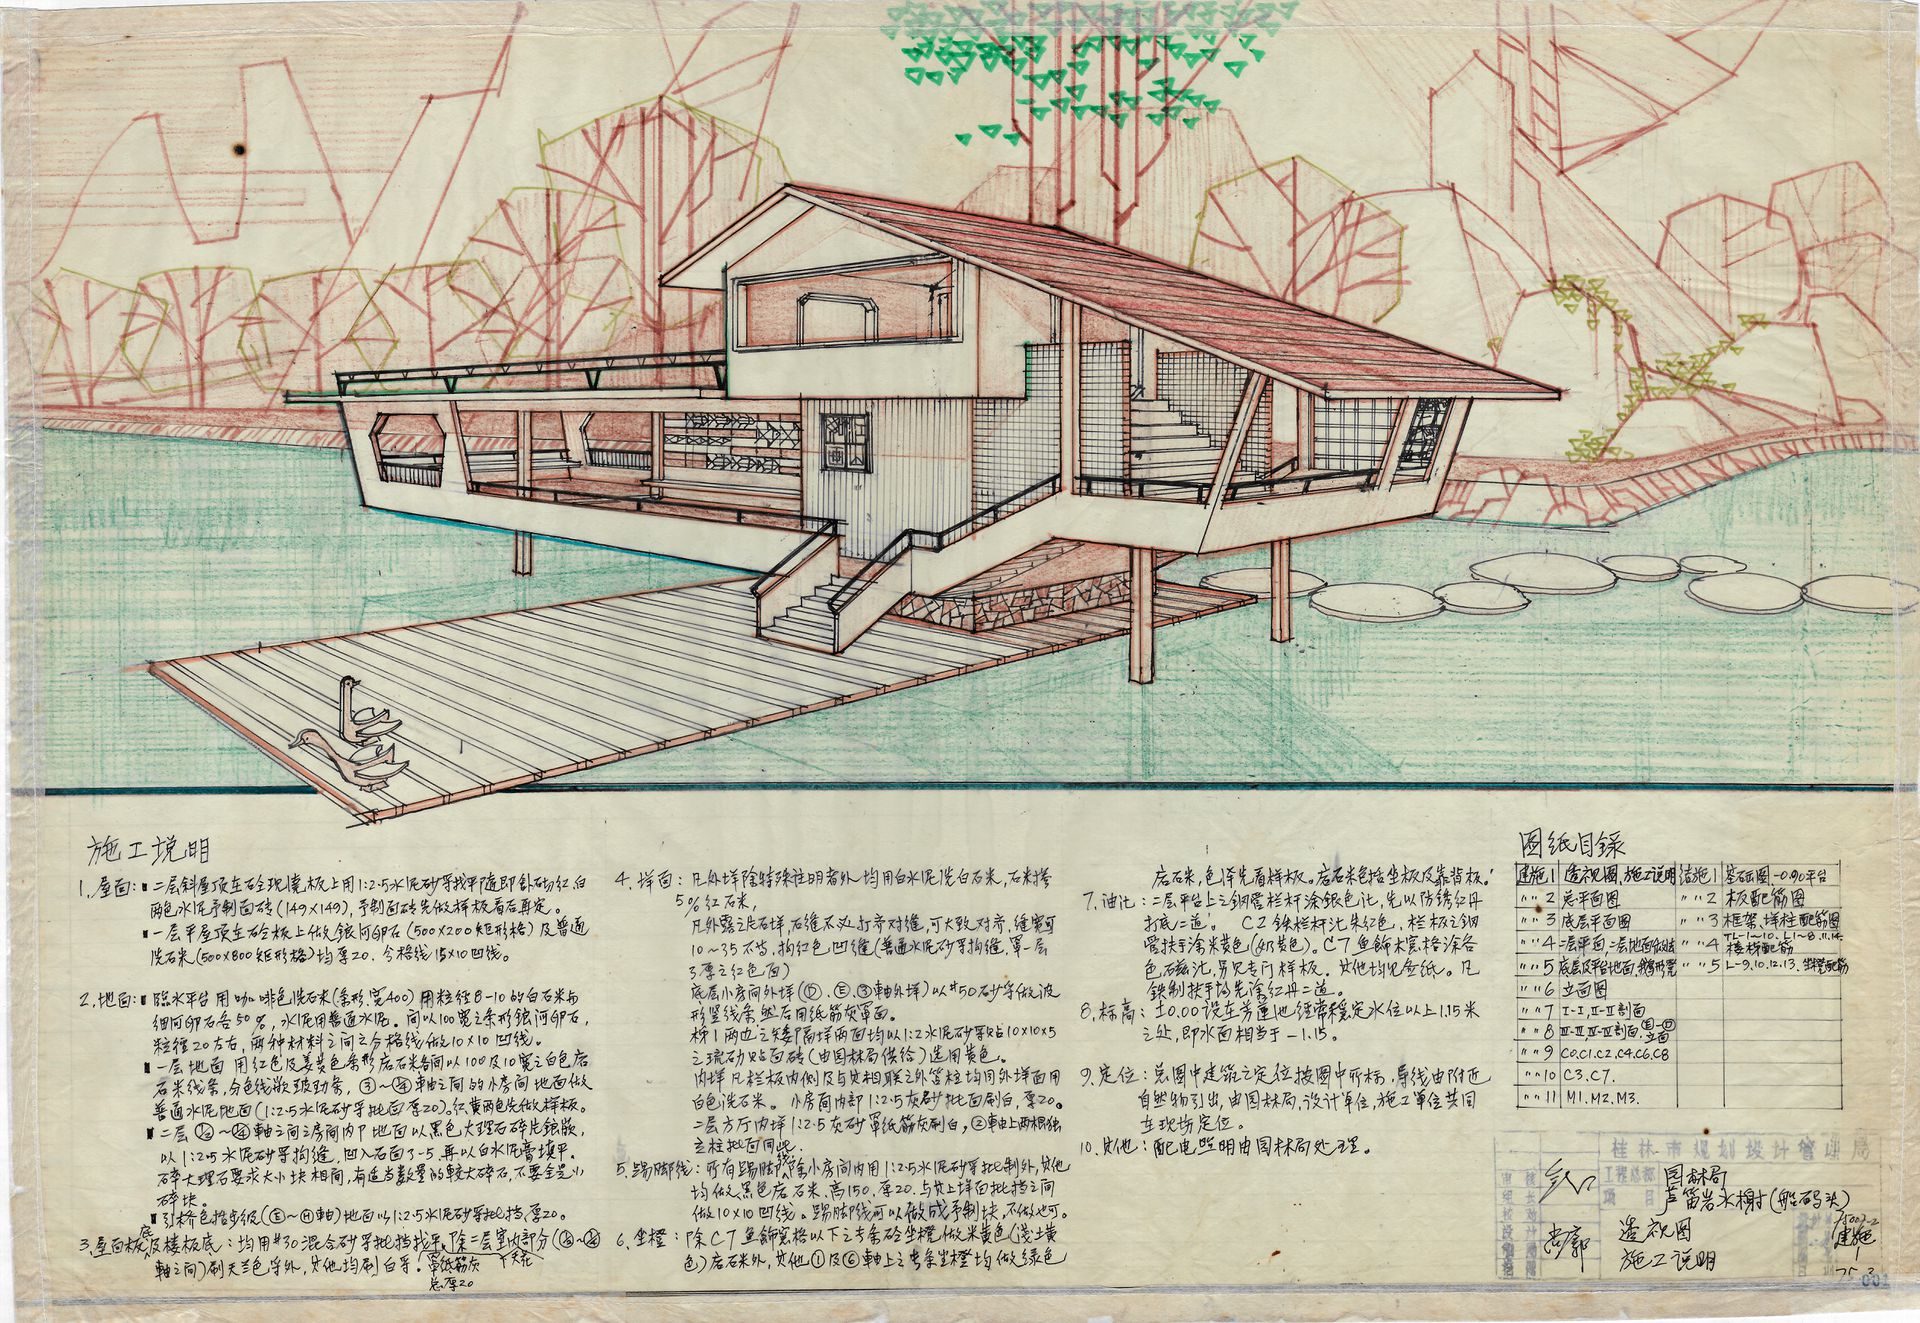 施工说明
1. 屋面: ▪二层斜屋顶在砼现浇板上用1:2·5水泥砂浆找平随即卧砌红、白
两色水泥予制面砖(149×149),予制面砖先做样板看后再定。
▪一层平屋顶在砼板上做银河卵石(500×200矩形格)及普通
洗石米(500×800矩形格)均厚20. 分格线15×10凹线。
2. 地面: ▪临水平台用咖啡色洗石米(条形.宽400)用粒径8-10的白石米与
细河卵石各50%, 水泥用普通水泥。间以100宽之条形银河卵石,
粒径20左右, 两种材料之间之分格线做10×10凹线。
▪一层地面 用红色及姜黄色条形启石米各间以100及10宽之白色启
石米线条, 分色线嵌玻动条,
軸之间的小房间地面做
普通水泥地面(1:2·5水泥砂浆批面厚20)。红黄两色先做样板。
▪二层
軸之间之房间内地面以黑色大理石碎片銀嵌,
以1:2·5水泥砂浆拘缝, 凹入石面3-5, 再以白水泥膏填平。
碎大理石要求大小块相间, 有适当数量的較大碎石, 不要全是小
碎块。
▪引桥包括步级(E~H軸)地面以1:2·5水泥砂浆批挡, 厚20。
3. 屋面板底及楼板底: 均用#30混合砂浆批挡找平, 除二层室内部分
軸之间)刷天兰色浮外, 其他均刷白浮。
草纸筋灰
总厚20
天花
4. 墙面: 凡外墙除特殊注明者外 均用白水泥洗白石米, 石米掺
5%红石米,
凡外露之片石墙, 石缝不必打齐对缝, 可大致对齐, 缝宽可
10~35不等, 拘红色凹缝(普通水泥砂浆拘缝, 罩一层
3厚之红色面)
底层小房间外墙(D、E、3軸外墙)以#50砂浆做波
形竖线条然后用纸筋灰罩面。
梯1两边之矮隔墙两面均以1:2水泥砂浆贴10×10×5
之琉动贴面砖(由园林局供给)选用黄色。
内墙 凡栏板内侧及与其相联之外管柱均同外墙面用
白色洗石米。 小房间内部1:2·5灰砂批面刷白, 厚20。
二层方厅内墙1:2·5灰砂罩纸筋灰刷白, ②軸上两根独
立柱批面同此.
5. 踢脚线: 所有踢脚线除小房间内用1:2·5水泥砂浆批制外, 其他
均做黑色启石米, 高150. 厚20. 与其上墙面批挡之间
做10×10凹线。踢脚线可以做成予制块, 不做也可。
6. 坐櫈: 除C7鱼飾窓格以下之长条砼坐櫈做米黄色(浅土黄
色)启石米外, 其他①及⑥軸上之长条坐櫈均做绿色
启石米, 色泽先看样板。启石米包括坐板及靠背板。
7. 油漆: 二层平台上之钢管栏杆涂银色漆, 先以防锈红丹
打底二道。 C2铁栏杆漆朱红色, 栏板之钢
管扶手涂米黄色(奶黄色)。C7鱼飾木窓格涂各
色石磁漆, 另见专门样板。其他均见各纸。凡
铁制扶手均先涂红丹二道。
8. 标高: ±0.00设在芳莲池经常稳定水位以上1.15米
之处, 即水面相当于-1.15。
9. 定位: 总图中建筑之定位按图中所标, 导线由附近
自然物引出, 由园林局, 设计单位, 施工单位共同
在现场定位。
10. 其他: 配电照明由园林局处理。
图纸目錄
建施1 透视图, 施工说明 结施1 基础图 -0.90平台
〃〃2 总平面图 〃〃2 板配筋图
〃〃3 底层平面图 〃〃3 框架, 墙柱配筋图
TL-1~10. L1~8.11.14
〃〃4 二层平面, 二层地面做法 〃〃4 楼梯配筋
〃〃5 底层及平台地面, 鹅形凳 〃〃5 L-9.10.12.13. 坐櫈配筋
〃〃6 立面图
〃〃7 I-I, II-II剖面
〃〃8 III-III, IV-IV剖面. E-D立面
〃〃9 C0.C1.C2.C4.C6.C8
〃〃10 C3. C7.
〃〃11 M1. M2. M3.
桂林市规划设计管理局
工程总称 园林局
项目 芦笛岩水榭(船码头)
尚廓
透视图
施工说明
建施1
001